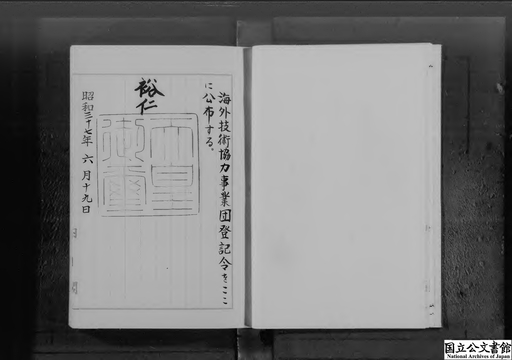 海外技術協力事業団登記令をここ
に公布する。
裕仁
天皇
御璽
昭和三十七年 六月十九日
国立公文書館
National Archives of Japan